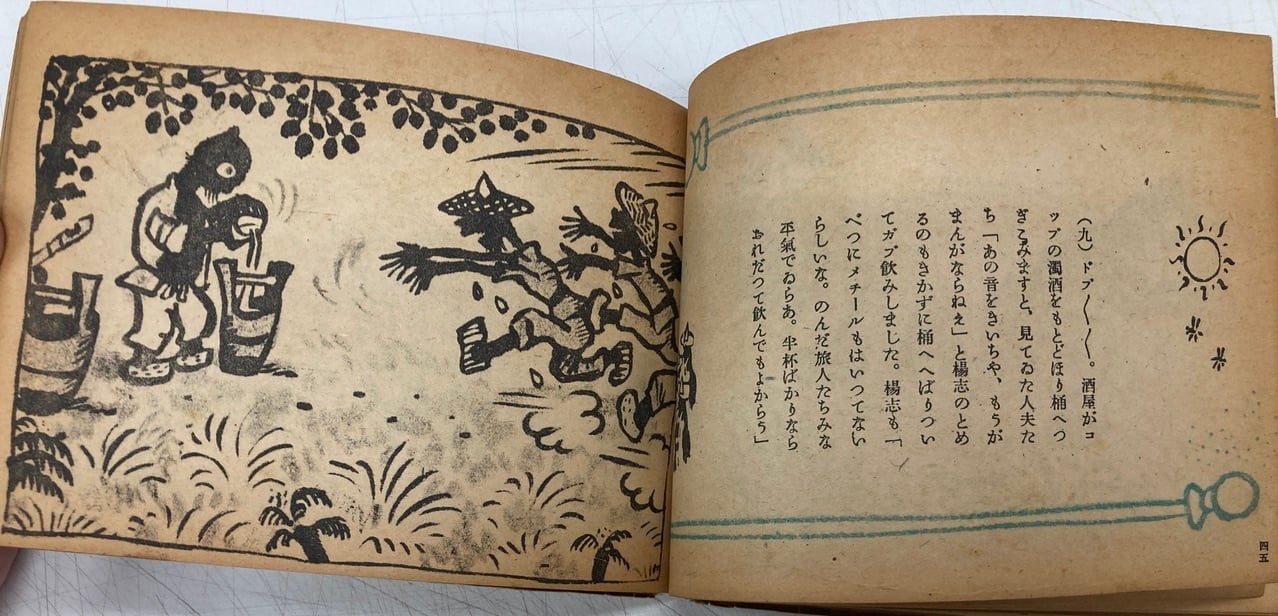 (九)ドブ〳〵〳〵〳〵。酒屋がコ
ップの濁酒をもとどほり桶へつ
ぎこみますと、見てゐた人夫た
ち「あの音をきいちや、もうが
まんがならねえ」と楊志のとめ
るのもきかずに桶へへばりつい
てガブ飲みしました。楊志も「
べつにメチールもはいつてない
らしいな。のんだ旅人たちみな
平氣でゐらあ。半杯ばかりなら
おれだつて飲んでもよからう」
四五